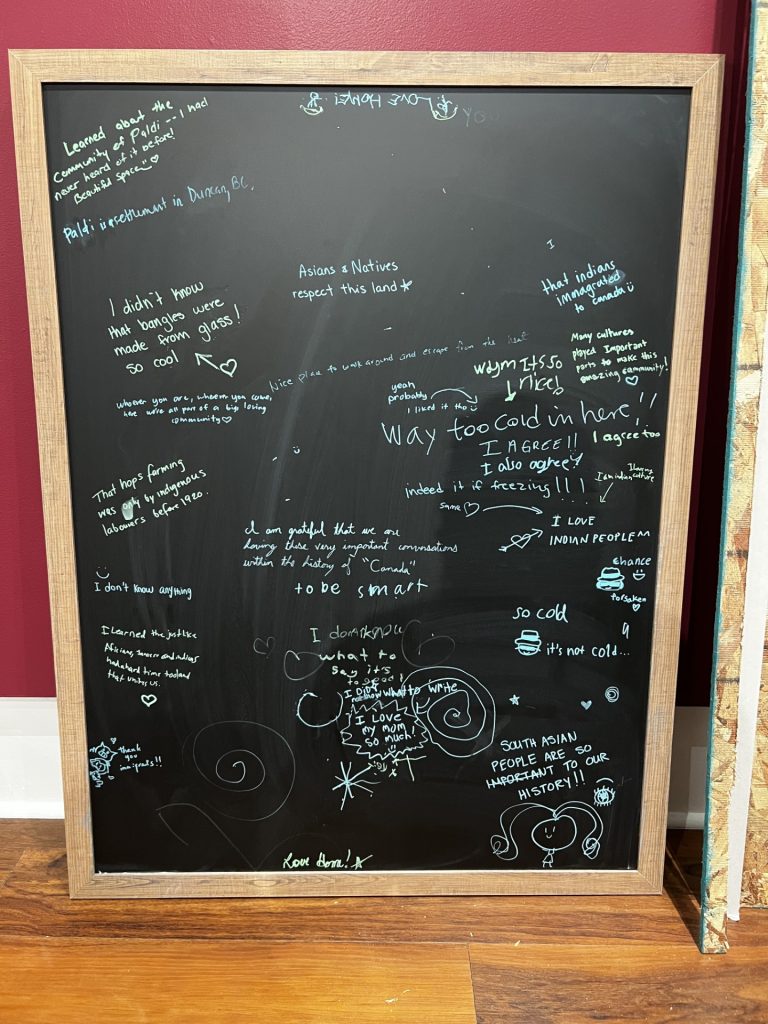 Learned about the
community of Paldi -- I had
never heard of it before!
Beautiful space
YOU
Paldi is a settlement in Duncan, BC.
I
Asians & Natives
respect this land
that indians
immagrated
to canada
I didn't know
that bangles were
made from glass!
so cool
Nice place to walk around and escape from the heat
Many cultures
played Important
parts to make this
amazing community!
wdym It's so
nice!
yeah
probably
I liked it tho
whoever you are, wherever you come,
here we're all part of a big loving
community
Way too cold in here!!
I AGREE!!
I agree too
I also agree!
indeed it if freezing!!!
That hops farming
was only by indigenous
labourers before 1920.
same
I LOVE
INDIAN PEOPLE
I am grateful that we are
having these very important conversations
within the history of "Canada"
to be smart
chance
forsaken
I don't know anything
so cold
it's not cold...
what to
say it's
I Learned the just like
what to write
I LOVE
my mom
so much!
SOUTH ASIAN
PEOPLE ARE SO
IMPORTANT TO OUR
HISTORY!!
thank
you